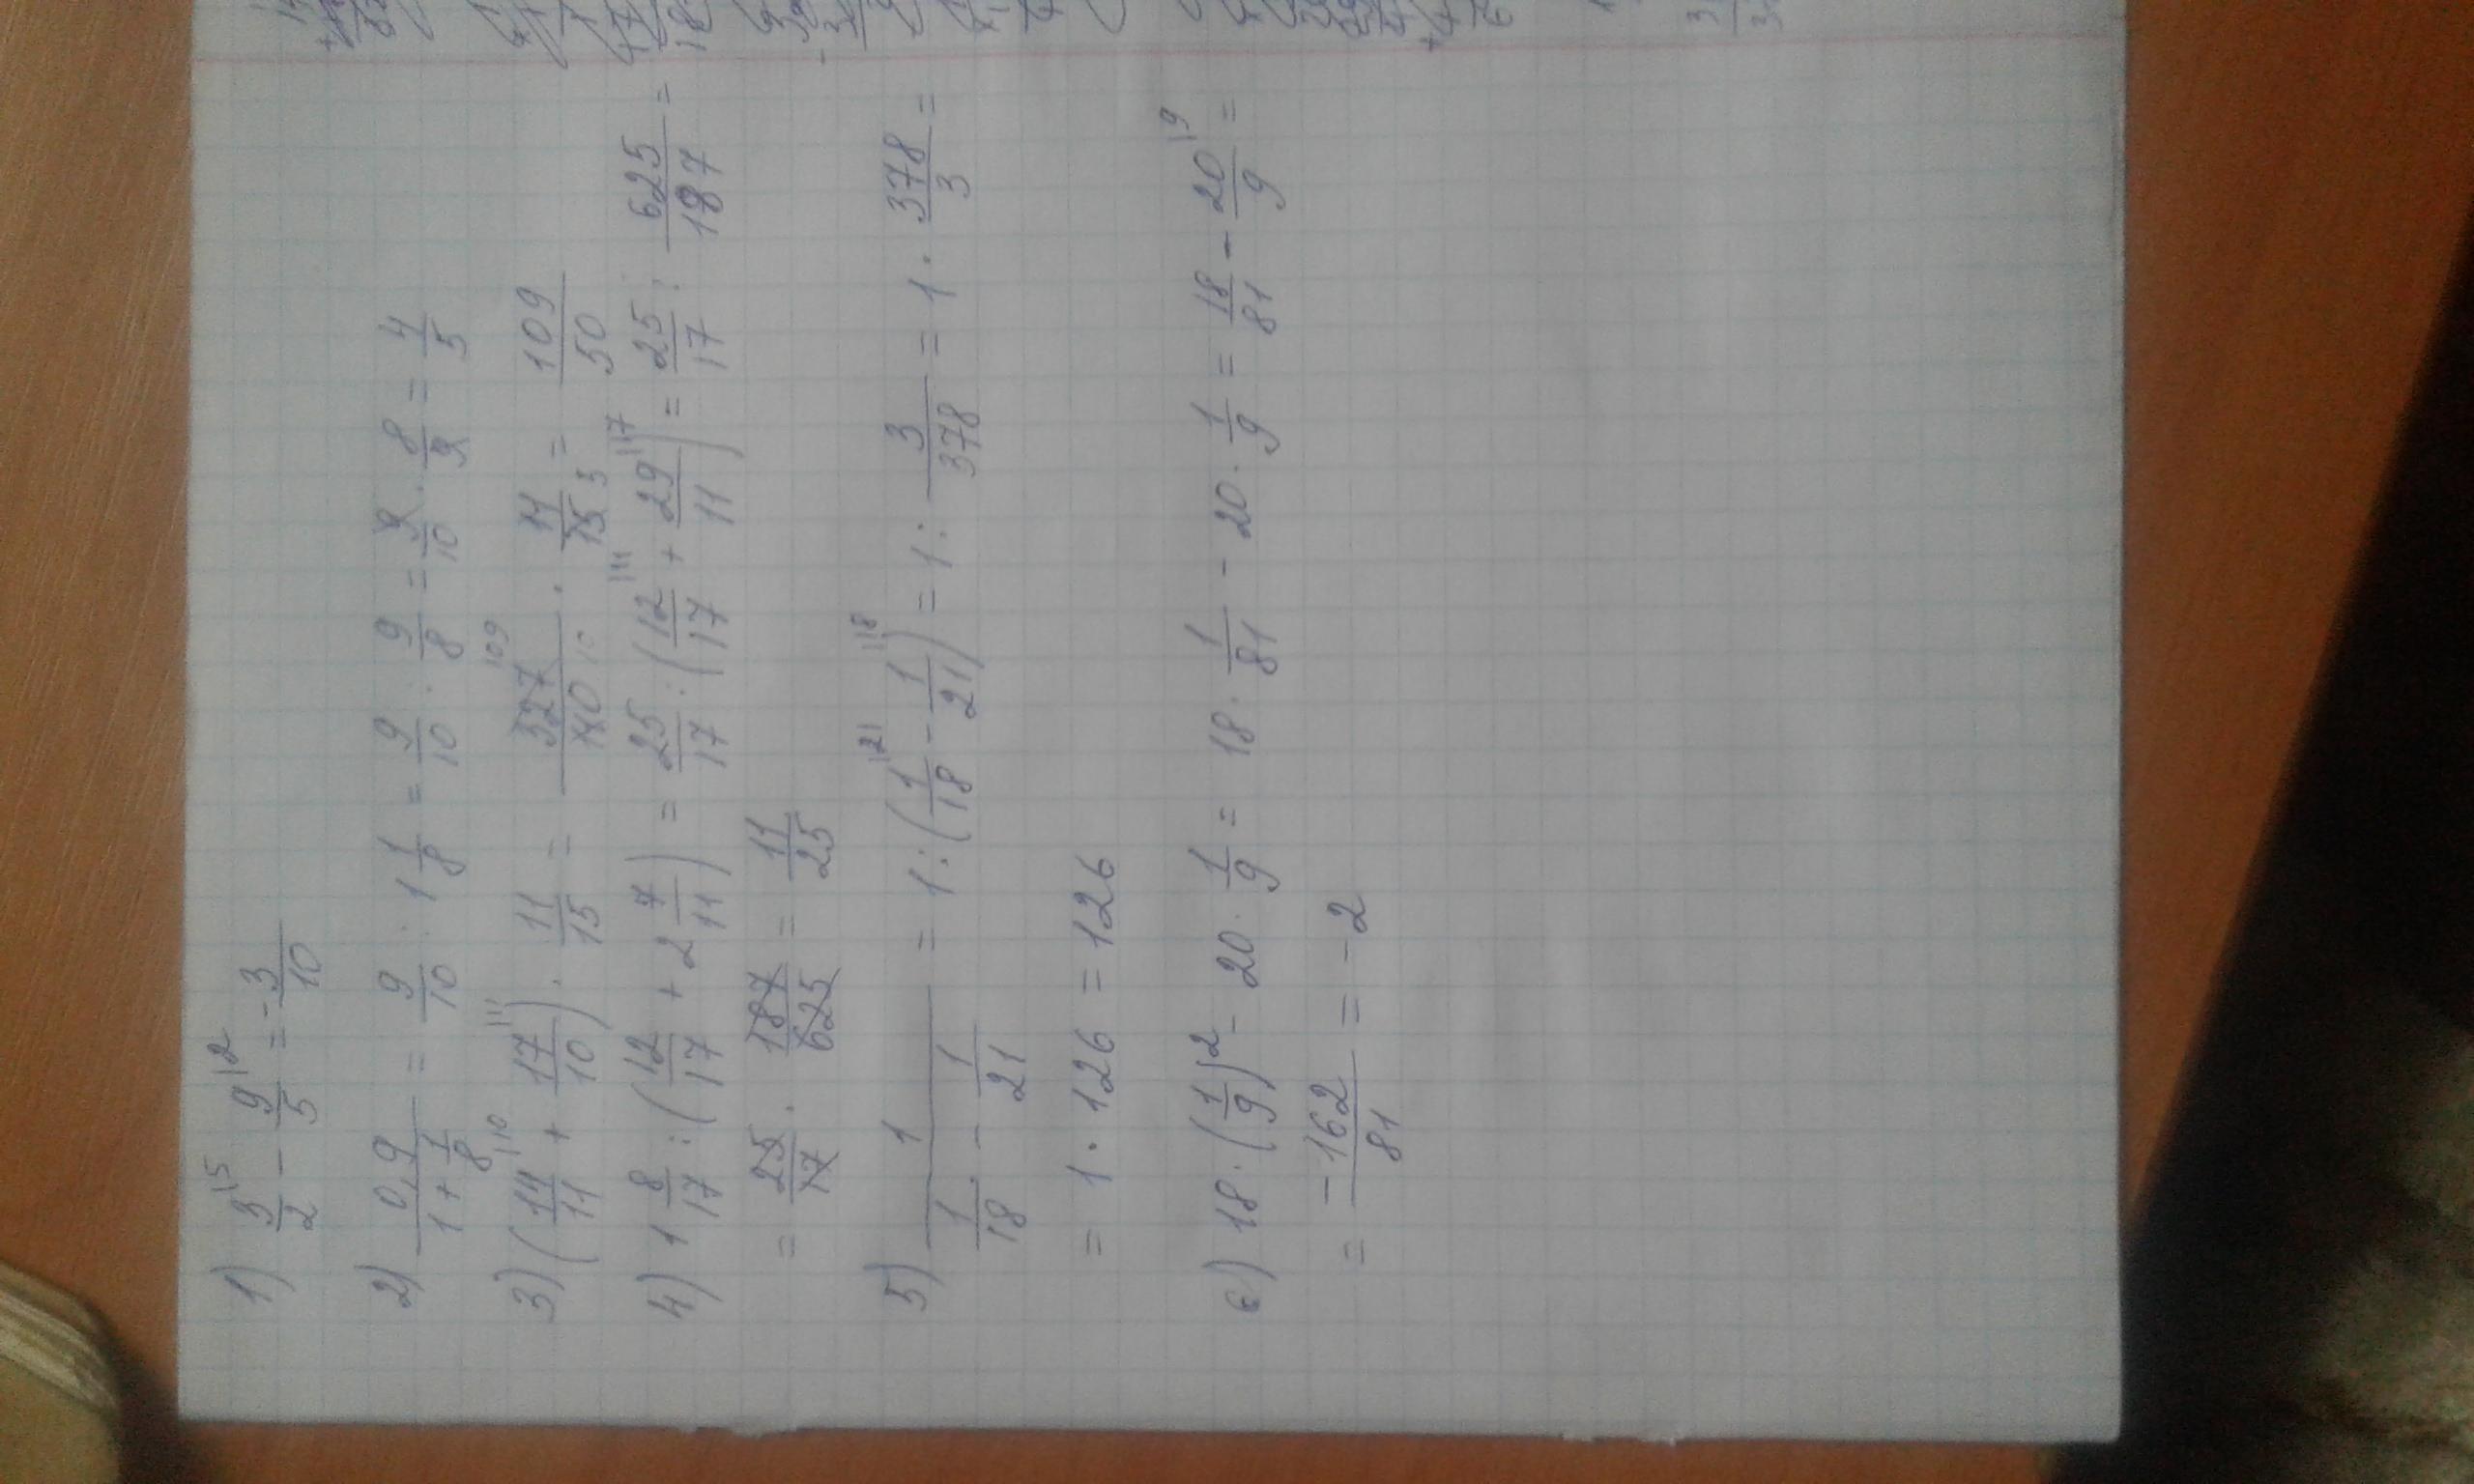 1) 3/2 |5 - 9/5 |2 = - 3/10
2) 0,9/(1 + 1/8) = 9/10 : 1 1/8 = 9/10 : 9/8 = 9/10 · 8/9 = 4/5
3) (14/11 |10 + 17/10 |11) · 11/15 = 327/110 · 11/15 = 109/50
4) 1 8/17 : (12/17 + 2 7/11) = 25/17 : (12/17 |11 + 29/11 |17) = 25/17 : 625/187 =
= 25/17 · 187/625 = 11/25
5) 1/(1/18 - 1/21) = 1 : (1/18 |21 - 1/21 |18) = 1 : 3/378 = 1 · 378/3 =
= 1 · 126 = 126
6) 18 · (1/9)² - 20 · 1/9 = 18 · 1/81 - 20 · 1/9 = 18/81 - 20/9 |9 =
= - 162/81 = -2